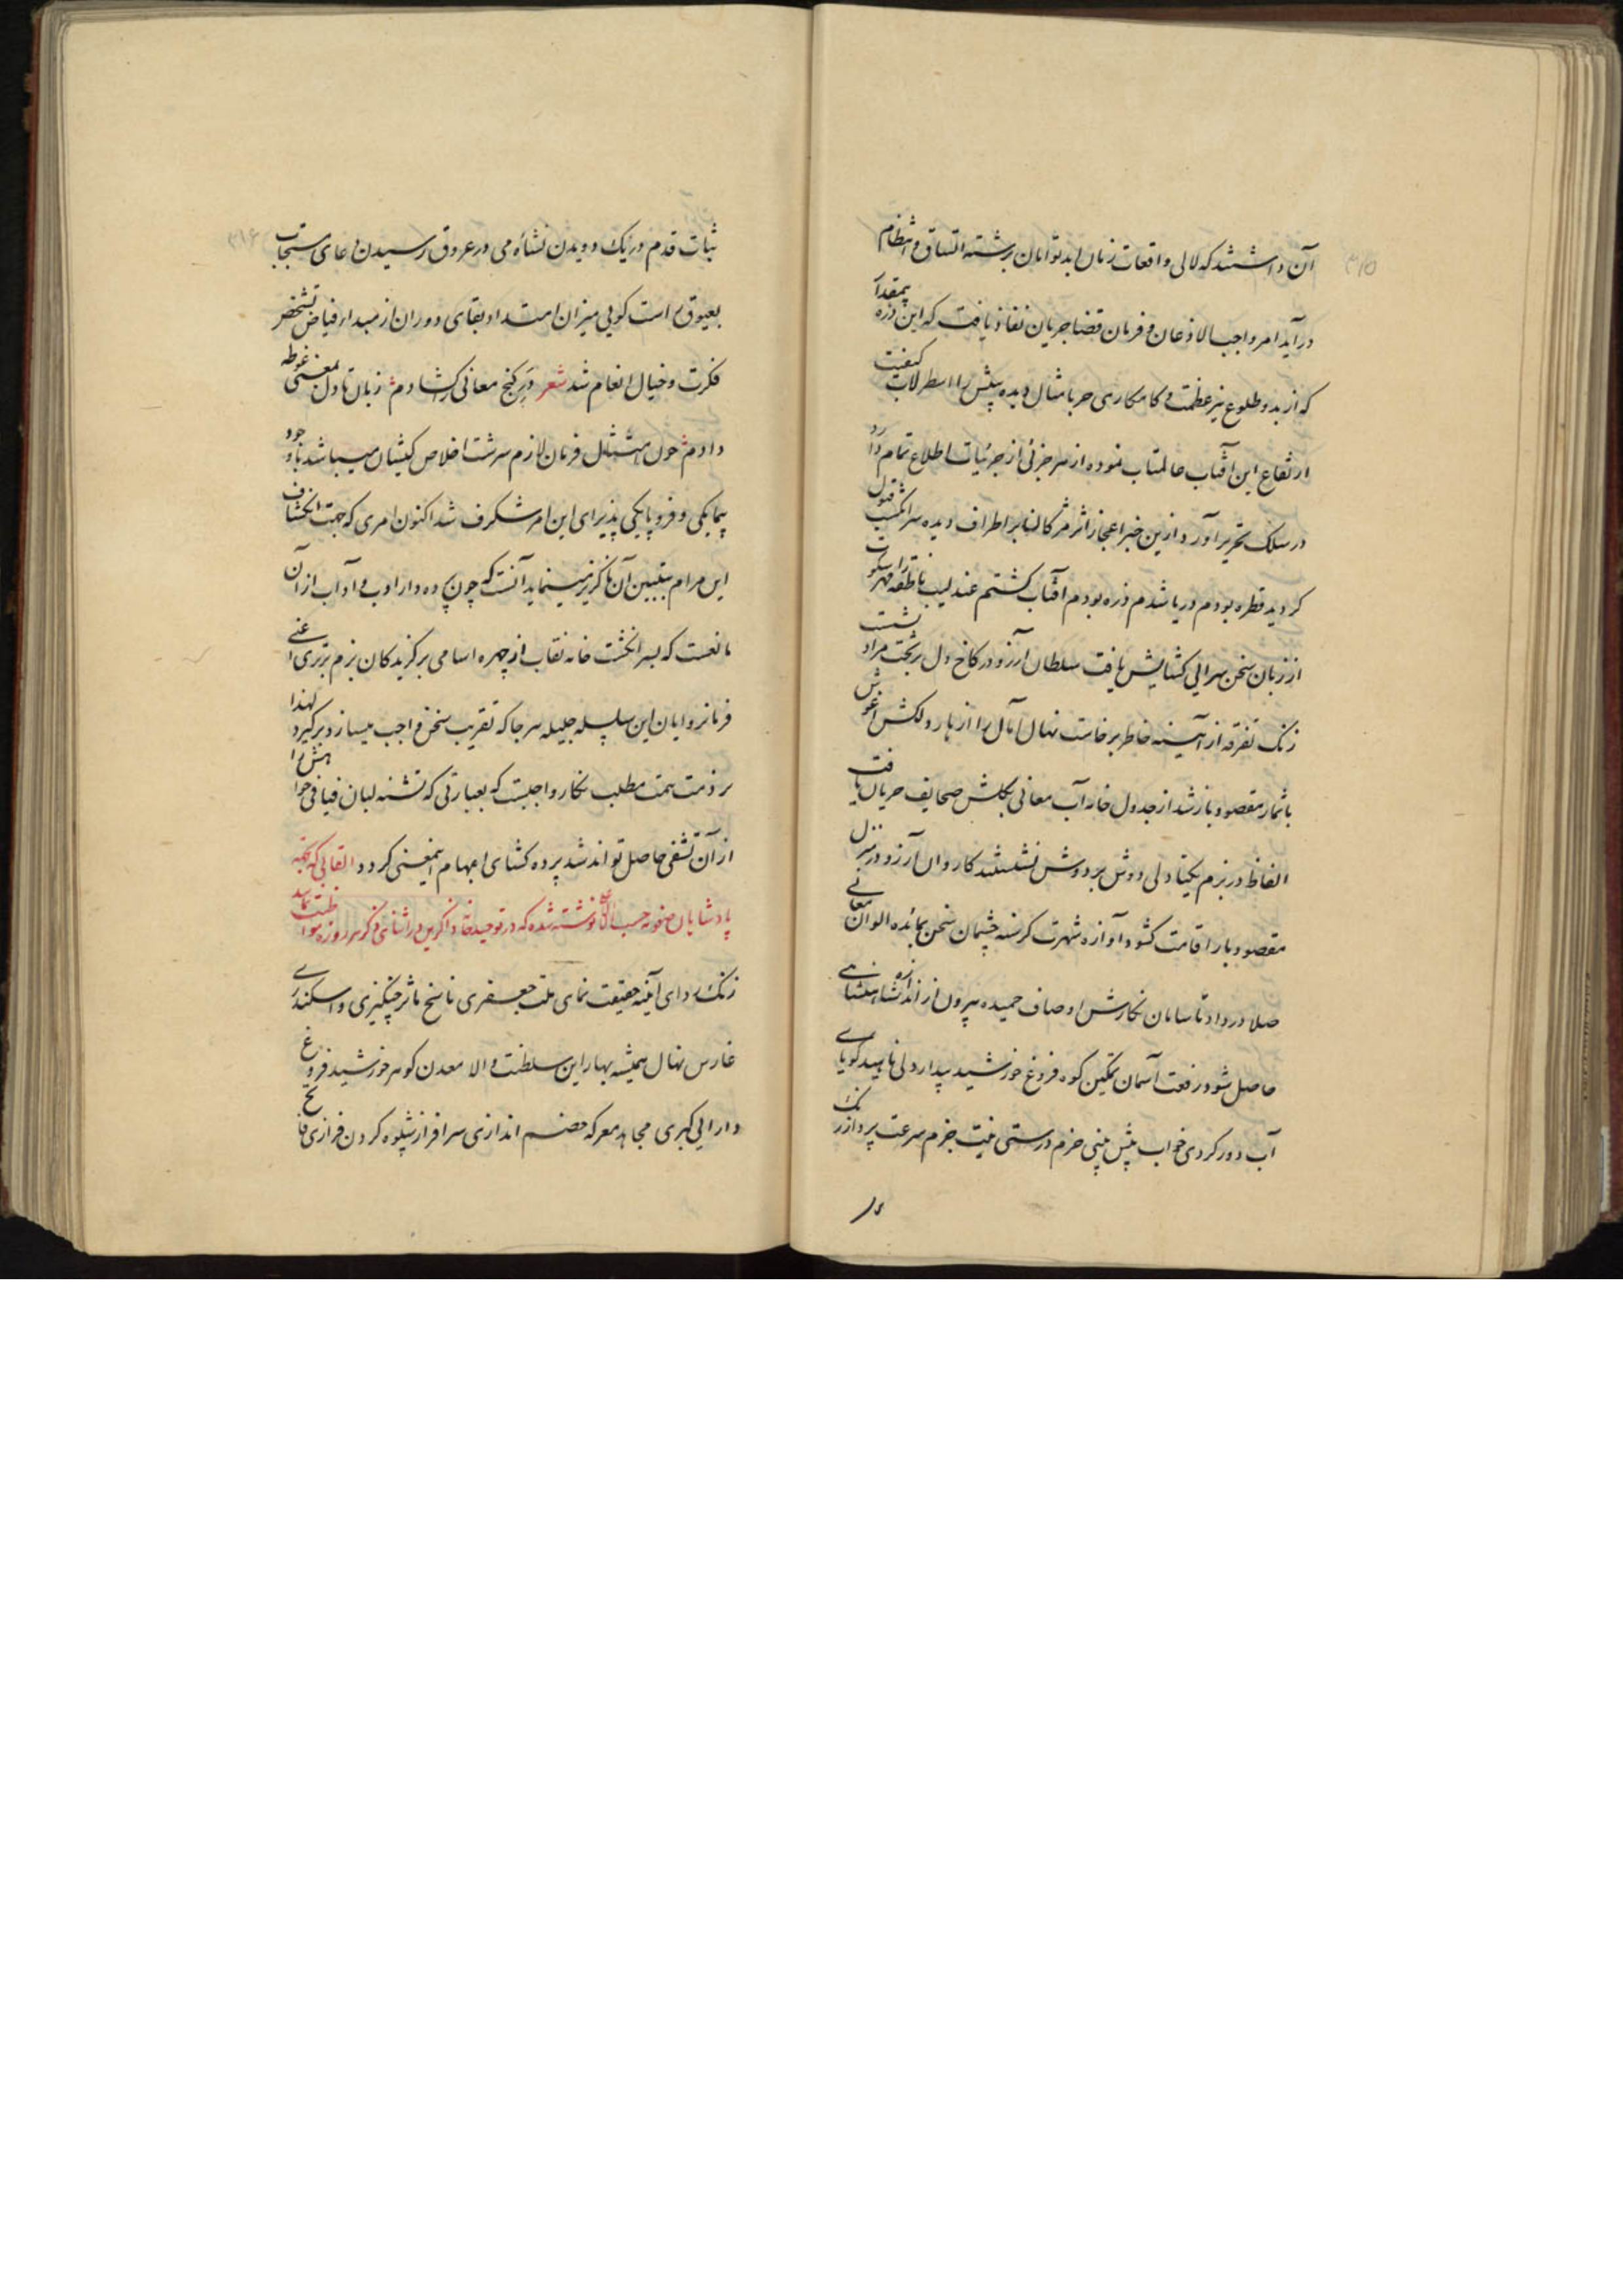 ۳۱۵
آن داشتند که لالی واقعات زمان ابد توامان برشته اتساق و انتظام
درآید امر واجب الاذعان و فرمان قضا جریان نفاذ یافت که این ذره بیمقدار
که از بدو طلوع نیر عظمت و کامکاری حربا مثال دیده بینش را اسطرلاب کیفیت
ارتفاع این آفتاب عالمتاب نموده از هر جزئی از جزئیات اطلاع تمام دارد
در سلک تحریر آورد ازین خبر اعجاز اثر مژگانها بر اطراف دیده سرانگشت قبول
گردید قطره بودم دریا شدم ذره بودم آفتاب گشتم عندلیب ناطقه را مهر سکوت
از زبان سخن سرایی گشایش یافت سلطان آرزو در کاخ دل بر تخت مراد نشست
زنگ تفرقه از آینه خاطر برخاست نهال آمال را از بار دلکش آغوش
با ثمار مقصود باز شد از جدول خامه آب معانی بگلشن صحایف جریان یافت
الفاظ در بزم یکتا دلی دوش بر دوش نشستند کاروان آرزو در سر منزل
مقصود بار اقامت گشود آوازه شهرت گرسنه چشمان سخن بمائده الوان معانی
صلا در داد تا سامان نگارش اوصاف حمیده بیرون از اندازه شاهنشاهی
حاصل شود رفعت آسمان تمکین کوه فروغ خورشید بیداردلی ناهید گویای
آب دور گردی خواب پیش بینی حزم درستی نیت جزم سرعت پرواز رنگ
۳۱۶
ثبات قدم در یک دویدن نشأه می در عروق رسیدن دعای مستجاب
بعیوق راست گویی میزان امتداد بقای دوران از مبداء فیاض تشخص
فکرت و خیال انعام شد شعر در گنج معانی گشادم زبان تا دل بمعنی غوطه
دادم چون امتثال فرمان لازم سرشت اخلاص کیشان میباشد با وجود
بیمایگی و فروپایگی پذیرای این امر شگرف شد اکنون امری که جهت انکشاف
این مرام تبیین آن ناگزیر مینماید آنست که چون پرده دار ادب و آداب از آن
مانعست که بسر انگشت خامه نقاب از چهره اسامی برگزیدگان بزم برتری اعنی
فرمانروایان این سلسله جلیله هر جا که تقریب سخن واجب میسازد برگیرد لهذا
بر ذمت همت مطلب نگار واجبست که بعبارتی که تشنه لبان فیافی خواهش را
از آن تشفی حاصل تواند شد پرده گشای ابهام اینمعنی گردد القابی که بجهة
پادشاهان صفویه حسب الامر نوشته شده که در توحیدخانه ذاکرین در اثنای ذکر هر روزه مواظبت نمایند
زنگ زدای آینه حقیقت نمای ملت جعفری ناسخ مآثر چنگیزی و اسکندری
غارس نهال همیشه بهار این سلطنت والا معدن گوهر خورشید فروغ
دارایی کبری مجاهد معرکه خصم اندازی سرافراز بشکوه گردن فرازی فاتح